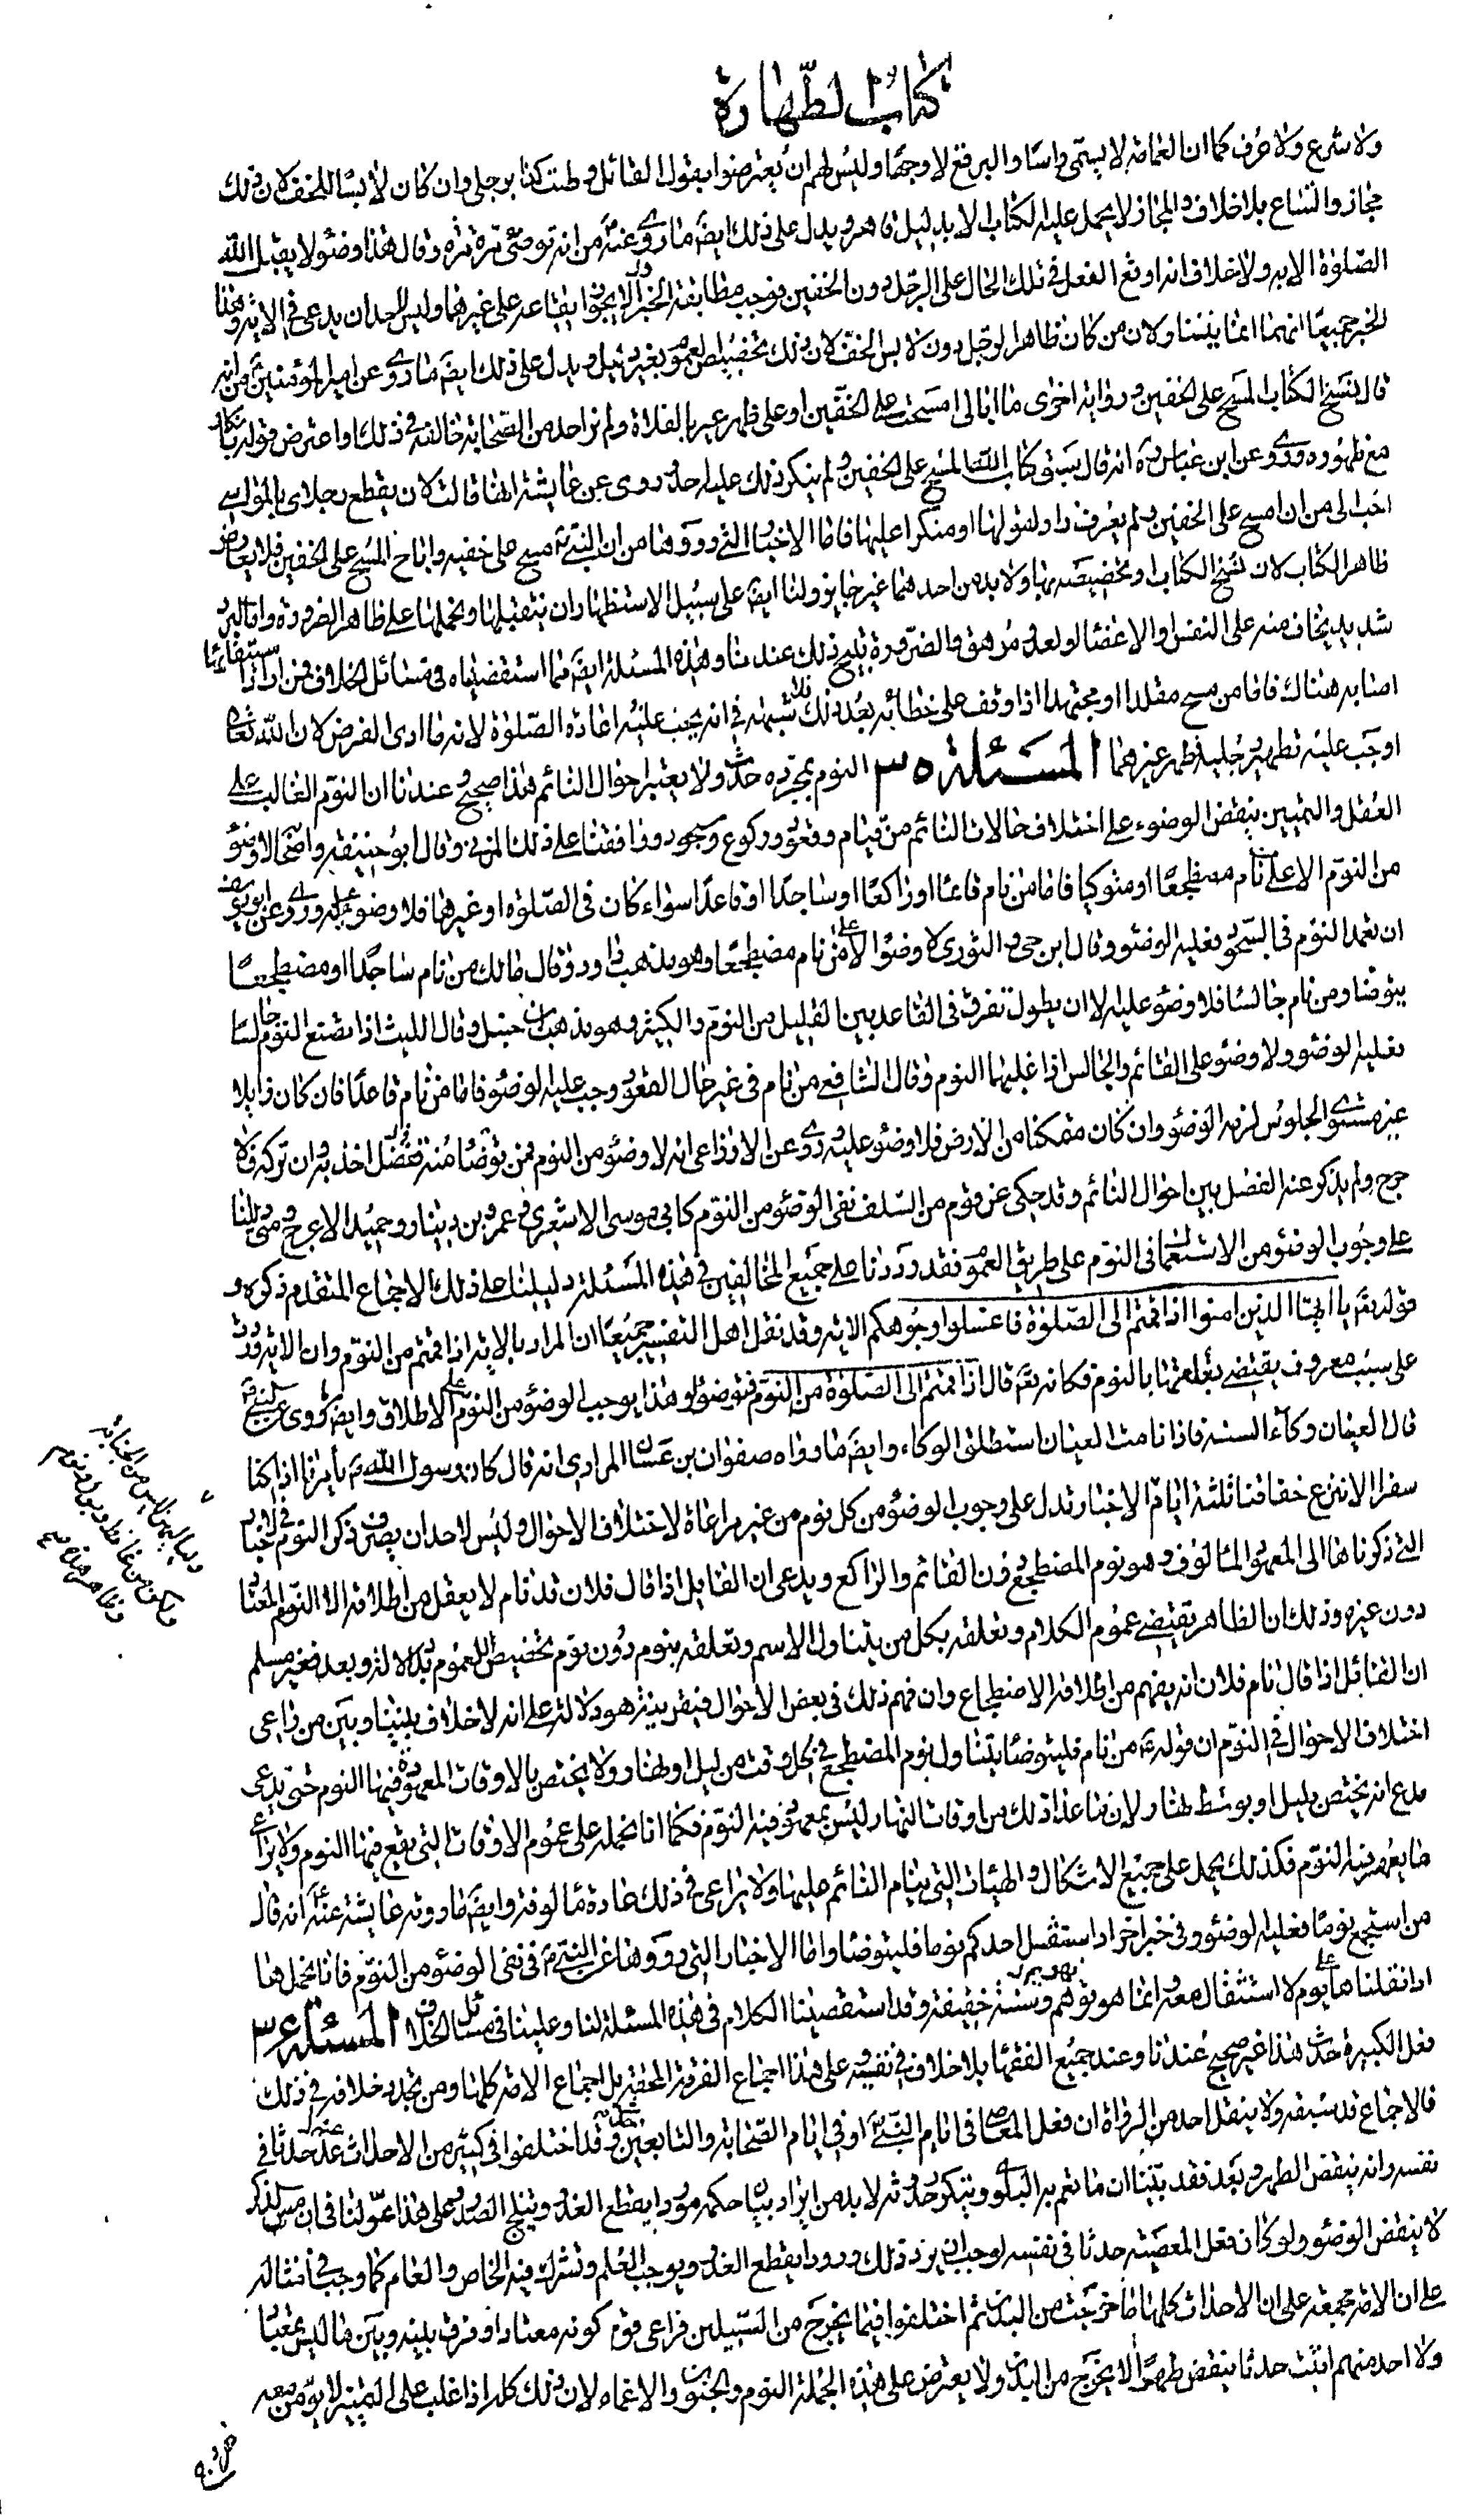 كتاب الطهارة
ولا شرع ولا عرف كما ان العمامة لا يسمى راسا والبرقع لا وجها وليس لهم ان يعترضوا بقول القائل وطئت كذا برجلي وان كان لابسا للخف لان ذلك
مجاز واتساع بلا خلاف والمجاز لا يحمل عليه الكتاب الا بدليل قاهر ويدل على ذلك ايضا ما روى عنه من انه توضئ مرة مرة وقال هذا وضوء لا يقبل الله
الصلوة الا به ولا خلاف انه اوقع الفعل في تلك الحال على الرجل دون الخفين فوجب مطابقة الخبر ولا يجوز ايقاعه على غيرهما وليس لاحد ان يدعى في الاية وهذا
الخبر جميعا انهما انما يتناولان من كان ظاهر الرجل دون لابس الخف لان ذلك تخصيص للعموم بغير دليل ويدل على ذلك ايضا ما روى عن امير المؤمنين من انه
قال نسخ الكتاب المسح على الخفين وفي رواية اخرى ما ابالى امسحت على الخفين او على ظهر عير بالفلاة ولم نر احدا من الصحابة خالفه في ذلك او اعترض قوله بانكار
مع ظهوره وروى عن ابن عباس ره انه قال سبق كتاب الله المسح على الخفين ولم ينكر ذلك عليه احد وروى عن عايشة انها قالت لان يقطع رجلاى بالمواسي
احب الى من ان امسح على الخفين ولم يعرف راد لقولها او منكرا عليها فاما الاخبار التي رووها من ان النبي مسح على خفيه واباح المسح على الخفين فلا يعارض
ظاهر الكتاب لان نسخ الكتاب او تخصيصه بها ولا بد من احدهما غير جايز ولنا ايضا على سبيل الاستظهار ان نتقبلها ونحملها على ظاهر الضرورة واما لبرد
شديد يخاف منه على النفس والاعضا او لعدو مرهق والضرورة تبيح ذلك عندنا وهذه المسئلة ايضا مما استقصيناه في مسائل الخلاف فمن ارادها استيفائها
اصابه هناك فاما من مسح مقلدا او مجتهدا اذا وقف على خطائه بعد ذلك فلا شبهة في انه يجب عليه اعادة الصلوة لانه ما ادى الفرض لان الله تعالى
اوجب عليه تطهير رجليه فطهر غيرهما المسئلة ٣٥ النوم بمجرده حدث ولا يعتبر احوال النائم هذا صحيح عندنا ان النوم الغالب على
العقل والتمييز ينقض الوضوء على اختلاف حالات النائم من قيام وقعود وركوع وسجود ووافقنا على ذلك المزني وقال ابو حنيفة واصحابه لا وضوء
من النوم الا على من نام مضطجعا او متوكيا فاما من نام قائما او راكعا او ساجدا او قاعدا سواء كان في الصلوة او غيرها فلا وضوء عليه وروى عن ابي يوسف
ان تعمد النوم في السجود فعليه الوضوء وقال ابن حي والثوري لا وضوء الا على من نام مضطجعا وهو مذهب داود وقال مالك من نام ساجدا او مضطجعا
يتوضا ومن نام جالسا فلا وضوء عليه الا ان يطول تفرق في القاعد بين القليل من النوم والكثير وهو مذهب ابن حنبل وقال الليث اذا تصنع النوم جالسا
فعليه الوضوء ولا وضوء على القائم والجالس اذا غلبهما النوم وقال الشافعي من نام في غير حال القعود وجب عليه الوضوء فاما من نام قاعدا فان كان زايلا
غير مستوى الجلوس لزمه الوضوء وان كان متمكنا من الارض فلا وضوء عليه وروى عن الاوزاعي انه لا وضوء من النوم فمن توضا منه ففضل اخذ به وان تركه فلا
حرج ولم يذكر عنه الفصل بين احوال النائم وقد حكى عن قوم من السلف نفي الوضوء من النوم كابي موسى الاشعري وعمرو بن دينار وحميد الاعرج ومتى دللنا
على وجوب الوضوء من الاشتمال في النوم على طريق العموم فقد رددنا على جميع المخالفين في هذه المسئلة دليلنا على ذلك الاجماع المتقدم ذكره و
قوله تعا يا ايها الذين امنوا اذا قمتم الى الصلوة فاغسلوا وجوهكم الاية وقد نقل اهل التفسير جميعا ان المراد بالاية اذا قمتم من النوم وان الاية وردت
على سبب معروف يقتضي تعلقها بالنوم فكانه تعا قال اذا قمتم الى الصلوة من النوم فتوضؤا وهذا يوجب الوضوء من النوم على الاطلاق وايضا روى عن النبي
قال العينان وكاء السته فاذا نامت العينان استطلق الوكاء وايضا ما رواه صفوان بن عسال المرادي انه قال كان رسول الله يأمرنا اذا كنا
سفرا الا ننزع خفافنا ثلثة ايام الاخبار تدل على وجوب الوضوء من كل نوم من غير مراعاة لاختلاف الاحوال وليس لاحد ان يصرف ذكر النوم في الاخبار
التي ذكرناها الى المعهود المالوف وهو نوم المضطجع دون القائم والراكع ويدعى ان القايل اذا قال فلان قد نام لا يعقل من اطلاقه الا النوم المعتاد
دون غيره وذلك ان الظاهر يقتضي عموم الكلام وتعلقه بكل من يتناوله الاسم وتعلقه بنوم دون نوم تخصيص للعموم بلا دلالة وبعد فغير مسلم
ان القائل اذا قال نام فلان انه يفهم من اطلاقه الاضطجاع وان فهم ذلك في بعض الاحوال فبقرينة هو دلالة على انه لا خلاف بيننا وبين من راعى
اختلاف الاحوال في النوم ان قوله من نام فليتوضا يتناول نوم المضطجع في كل وقت من ليل او نهار ولا يختص بالاوقات المعهودة فيها النوم حتى يدعى
مدع انه يختص بليل او بوسط نهار لان ما عدا ذلك من اوقات النهار ليس بمعهود فيه النوم فكما انا نحمله على عموم الاوقات التي يقع فيها النوم ولا نراعى
ما يعهد فيه النوم فكذلك يحمل على جميع الاشكال والهيئات التي ينام النائم عليها ولا يراعى في ذلك عادة مالوفة وايضا ما روته عايشة عنه انه قال
من استجمع نوما فعليه الوضوء وفي خبر اخر اذا استثقل احدكم نوما فليتوضا واما الاخبار التي رووها عن النبي في نفي الوضوء من النوم فانا نحملها
اذا نقلناها على نوم لا استثقال معه وانما هو تهويم وسنة خفيفة وقد استقصينا الكلام في هذه المسئلة لنا وعلينا في مسائل الخلاف المسئلة ٣٦
فعل الكبيرة حدث هذا غير صحيح عندنا وعند جميع الفقهاء بلا خلاف في نفسه وعلى هذا اجماع الفرقة المحقة بل اجماع الامة كلها ومن تجدد خلافه في ذلك
فالاجماع قد سبقه ولا ينقل احد من الرواة ان فعل المعاصي في ايام النبي او في ايام الصحابة والتابعين وقد اختلفوا في كثير من الاحداث عد حدثا في
نفسه وانه ينقض الطهر وبعد فقد بينا ان ما تعم به البلوى ويتكرر حدوثه لا بد من ايراد بيان حكمه مورد ايقطع العذر ويثلج الصدر وعلى هذا عولنا في ان مس الذكر
لا ينقض الوضوء ولو كان فعل المعصية حدثا في نفسه لوجب ان يرد ذلك ورودا يقطع العذر ويوجب العلم وتشرك فيه الخاص والعام كما وجب في امثاله
على ان الامة مجمعة على ان الاحداث كلها ما خرجت من البدن ثم اختلفوا فيما يخرج من السبيلين فراعى قوم كونه معتادا وفرق بينه وبين ما ليس بمعتاد
ولا احد منهم اثبت حدثا ينقض طهورا لا يخرج من البدن ولا يعترض على هذه الجملة النوم والجنون والاغماء لان ذلك كله اذا غلب على التمييز لا يؤمن معه
وليالهن ليس من الجنابة
ولكن من غائط وبول ونوم